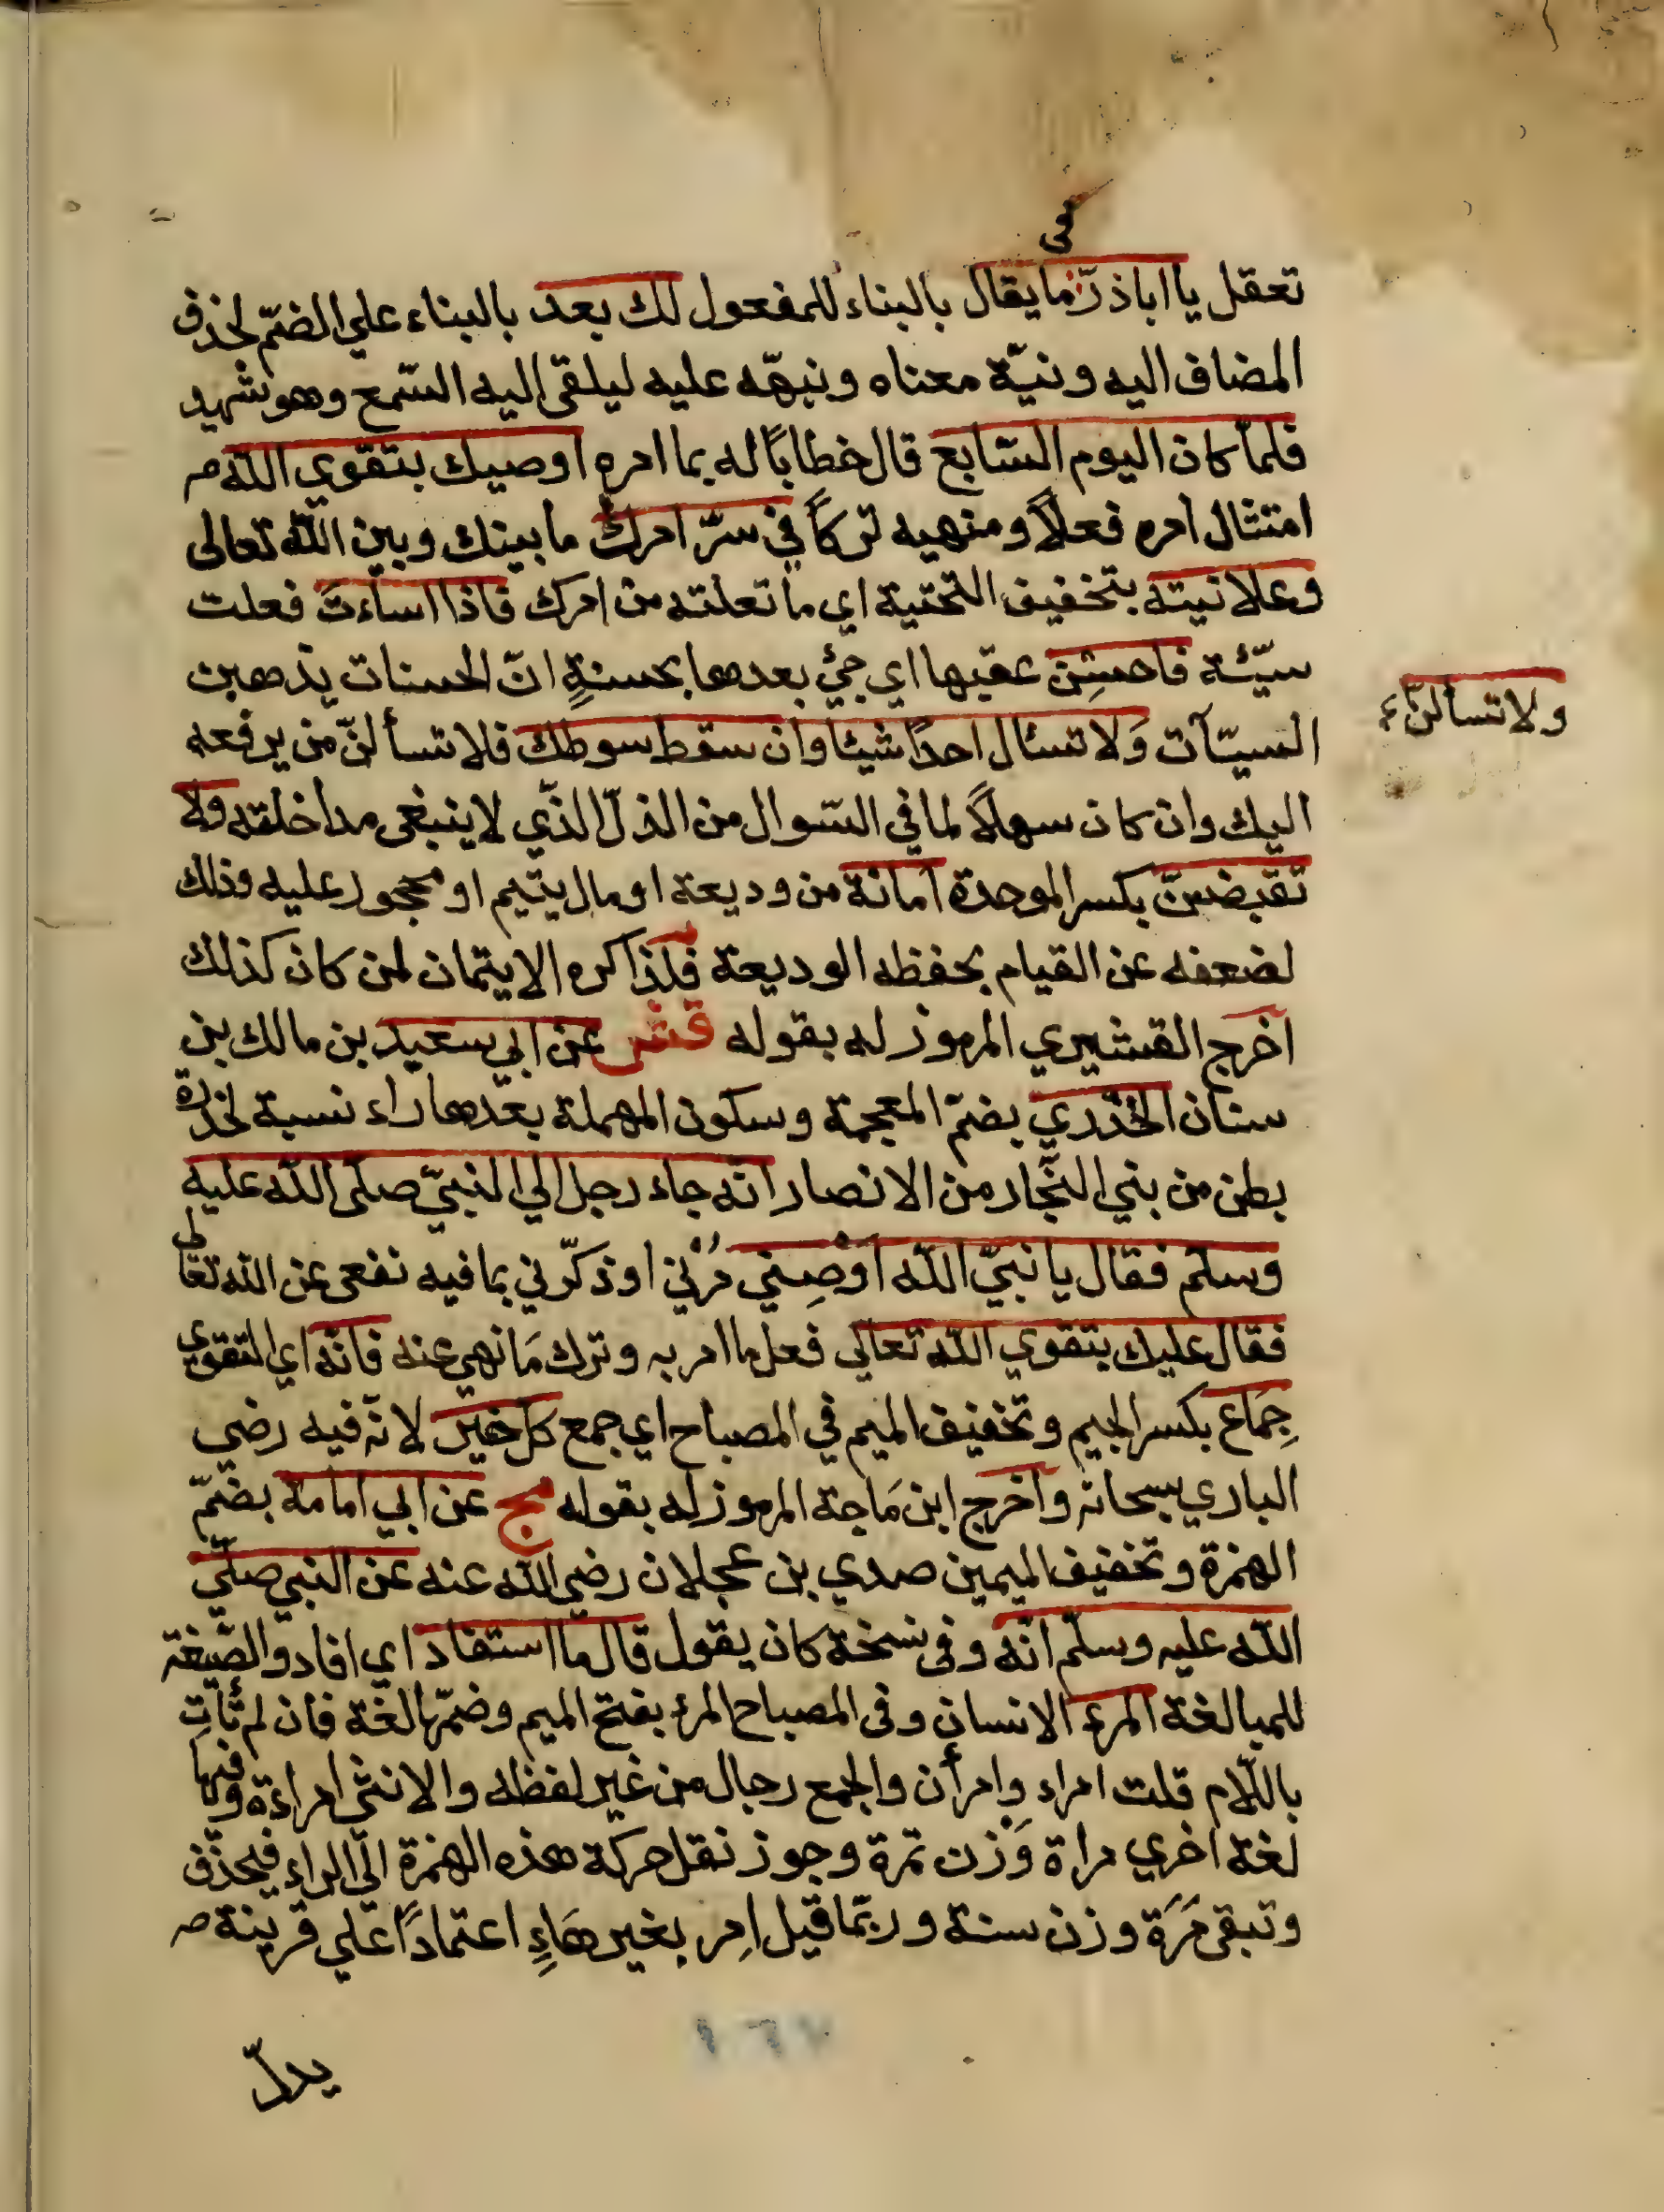 في
تعقل يا اباذرّ ما يقال بالبناء للمفعول لك بعد بالبناء علي الضمّ لحذف
المضاف اليه ونيّة معناه ونبهّه عليه ليلقى اليه السّمع وهو شهيد
فلمّا كان اليوم السّابع قال خطابًا له بما امره اوصيك بتقوي الله
امتثال امره فعلاً ومنهيه تركاً في سرّ امرك ما بينك وبين الله تعالى
وعلانيته بتخفيف التحتية اي ما تعلنه من امرك فاذا اساءتَ فعلت
سيّئة فاحسِن عقبها اي جئ بعدها بحسنةٍ انّ الحسنات يذهبن
السيّآت وَلا تسئال احدًا شيئا وان سقط سوطك فلا تسألنّ من يرفعه
ولا تسألنّ
اليك وان كان سهلاً لما في السّوال من الذلّ الذّي لا ينبغى مداخلته ولا
تقبضنّ بكسر الموحدة امانة من وديعة او مال يتيم او محجور عليه وذلك
لضعفه عن القيام بحفظه الوديعة فلذا كره الايتمان لمن كان كذلك
اخرج القشيري المرموز له بقوله قشى عن ابي سعيد بن مالك بن
سنان الخدري بضمّ المعجمة وسكون المهملة بعدها راء نسبة لخدرة
بطن من بني النّجار من الانصار انّه جاء رجل الي النبيّ صلّى الله عليه
وسلّم فقال يا نبيّ الله اَوْصِني مُرْني او ذكّرني بما فيه نفعى عن الله تعالى
فقال عليك بتقوي الله تعالى فعل ما امر به وترك مَا نهي عنه فانّه اي التقوي
جِمَاع بكسر الجيم وتخفيف الميم في المصباح اي جمع كل خير لانّه فيه رضي
الباري سبحانه واخرج ابن مَاجة المرموز له بقوله مج عن ابي امامة بضمّ
الهمزة وتخفيف الميمين صدي بن عجلان رضي الله عنه عن النبي صلّي
الله عليه وسلّم انّه وفى نسخة كان يقول قال ما استفاد اي افاد والصّيغة
للمبالغة المرء الانسان وفى المصباح المرء بفتح الميم وضمّها لغة فان لم تأتِ
باللّام قلت امراء وامرأن والجمع رجال من غير لفظه والانثى امراءة وفيها
لغة اخري مراة وَزن تمرة وجوز نقل حركة هذه الهمزة الي الراء فيحذف
وتبقى مَرَة وزن سنة وربّما قيل اِمر بغير هَاءٍ اعتمادًا علي قرينة
يدلّ